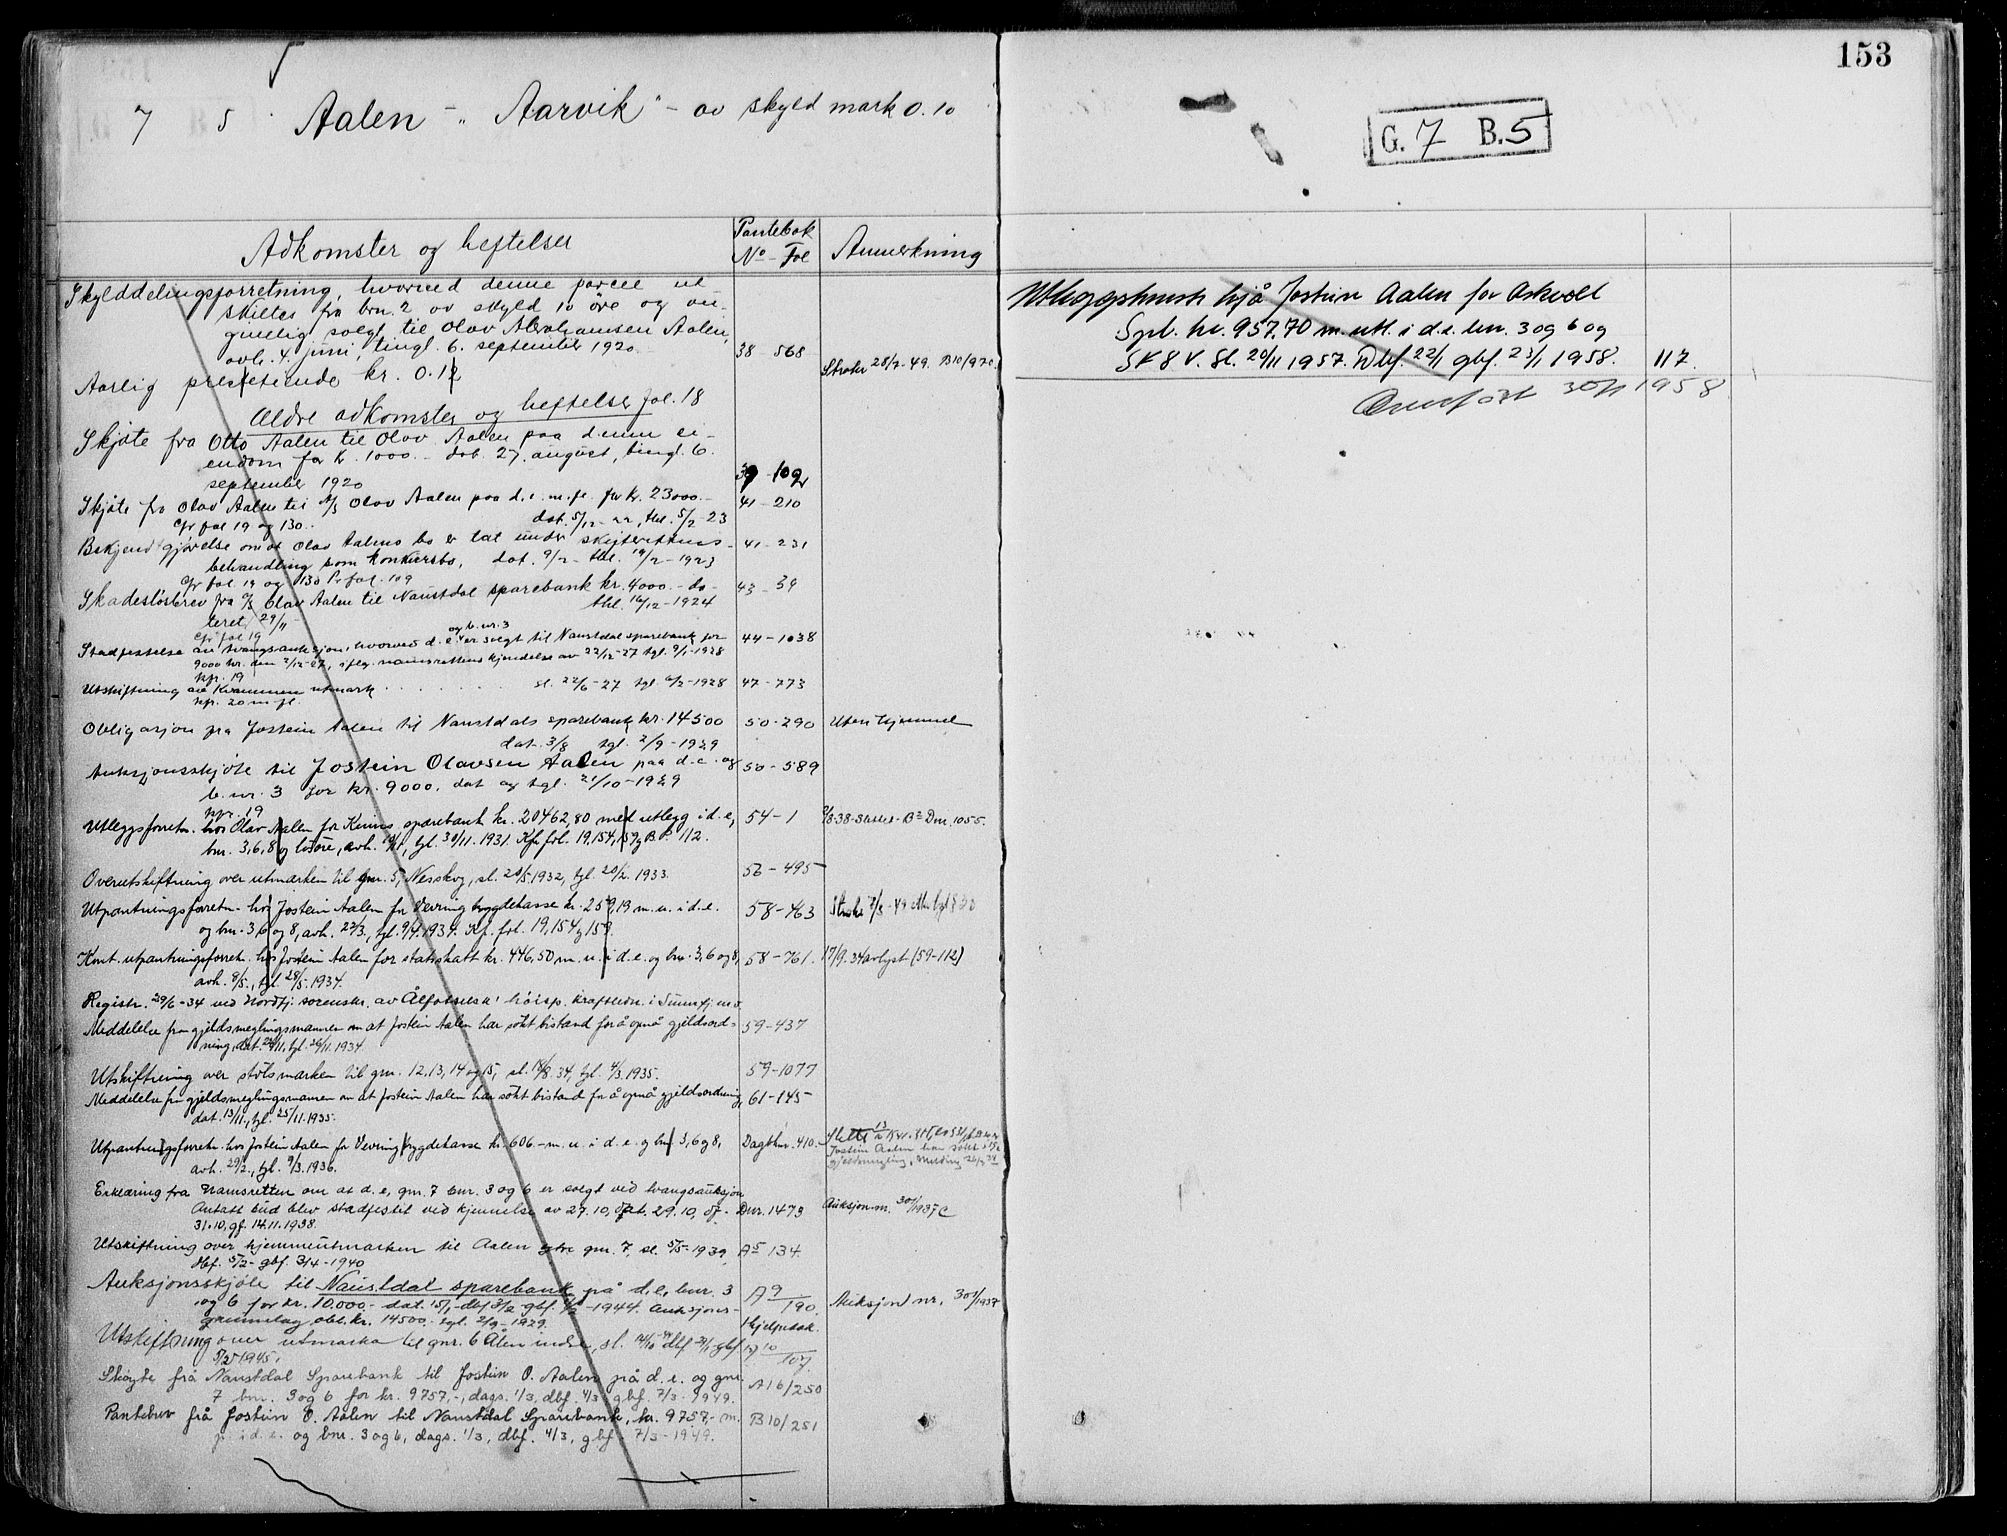 153
7 5. Aalen - "Aarvik" - av skyld mark 0.10
G. 7 B. 5
Adkomster og heftelser
Pantebok
No - Fol
Anmerkning
Skylddelingsforretning, hvorved denne parcel ut-
skilles fra brn. 2 av skyld 10 øre og an-
givelig solgt til Olav Abrahamsen Aalen,
avh. 4. juni, tingl. 6. september 1920. 38 - 568
Aarlig presteriende kr. 0.12 Strøket 28/2-49. B10/970.
Ældre adkomster og heftelser fol. 18
Skjøte fra Otto Aalen til Olav Aalen paa denne ei-
endom for kr. 1000.- dat. 27. august, tingl. 6.
september 1920 39 - 109
Skjøte fra Olav Aalen til A/S Olav Aalen paa d.e. m.fl. for kr. 23000.- 41 - 210
Cfr fol 19 og 130. dat. 5/12-22, thl. 5/2-23
Bekjendtgjørelse om at Olav Aalens bo er tat under skifterettens- 41 - 231
behandling som konkursbo, dat. 9/2- thl. 19/2-1923
Cfr fol 19 og 130 Pr fol. 109
Skadesløsbrev fra A/S Olav Aalen til Naustdal sparebank kr. 4000 - da- 43 - 39
teret 29/11 thl. 16/12-1924
Cfr fol 19
og b.nr. 3
Stadfestelse av tvangsauksjon, hvorved d.e. er solgt til Naustdal sparebank for 44 - 1038
9000 kr. den 2/12-27, iflg. namsrettens kjendelse av 22/12-27 tgl. 9/1-1928
kfr. 19
Utskiftning av Kvammen utmark . . . . . . . sl. 22/6-27 tgl. 6/2-1928 47 - 773
kfr. 20 m.fl.
Obligasjon fra Jostein Aalen til Naustdals sparebank kr. 14500 50 - 290 Uten hjemmel
dat. 3/8 tgl. 2/9-1929
Auksjonsskjøte til Jostein Olavsen Aalen paa d.e. og 50 - 589
b.nr. 3 for kr. 9000. dat og tgl. 21/10-1929
kfr. 19
Utleggsforretn. hos Olav Aalen for Kinns sparebank kr. 20462,80 med utlegg i d.e, 54 - 1
bnr. 3,6,8 og løsøre, avh. tgl. 30/11.1931. Kfr. fol. 19,154,159 B.P. 112.
Overutskiftning over utmarken til gnr. 5, Nesskog, sl. 20/5.1932, tgl. 20/2. 1933. 56 - 495
Utpantningsforretn. hos Jostein Aalen for Vevring bygdekasse kr. 259,19 m.u. i d.e. 58 - 463
og bnr. 3,6 og 8, avh. 22/3., tgl. 9/4.1934. Kfr. fol. 19,154 og 159.
Kont. utpantningsforretn. hos Jostein Aalen for statsskatt kr. 446,50 m.u. i d.e. og bnr. 3,6 og 8, 58 - 761. 17/9.34 avlyst (59-112)
avh. 9/5., tgl. 28/5.1934.
Registr. 29/6-34 ved Nordfj. sorenskr. av Ålfotselsk' høisp. kraftledn. i Sunnfjord
Meddelelse fra gjeldsmeglingsmannen om at Jostein Aalen har søkt bistand for å opnå gjeldsord- 59 - 437
ning, dat. 22/11, tgl. 26/11.1934.
Utskiftning over stølsmarken til gnr. 12,13,14 og 15, sl. 14/8.34, tgl. 4/3.1935. 59 - 1077
Meddelelse fra gjeldsmeglingsmannen om at Jostein Aalen har søkt bistand for å opnå gjeldsordning, 61 - 145
dat. 13/11., tgl. 25/11.1935.
Utpantningsforretn. hos Jostein Aalen for Vevring bygdekasse kr. 606.- m.u. i d.e. og bnr. 3,6 og 8, Dagb.nr. 410.
avh. 29/2., tgl. 9/3.1936. Jostein Aalen har søkt
Erklæring fra Namsretten om at d.e, gnr. 7 bnr. 3 og 6 er solgt ved tvangsauksjon
Antatt bud blev stadfestet ved kjennelse av 27.10, dat. 29.10, df. Dnr. 1473 Auksjon nr. 30/1937
31.10, gf. 14.11.1938.
Utskiftning over hjemmeutmarken til Aalen ytre gnr. 7, sl. 5/5-1939, A5 134.
dbf. 5/2- gbf. 3/4-1940
Auksjonsskjøte til Naustdal sparebank på d.e, bnr. 3 A9/190
og 6 for kr. 10.000.- dat. 15/1-dbf 3/2-gbf. -1944. Auksjons- Auksjon nr. 30/1937
grunnlag obl. kr. 14500.- tgl. 2/9-1929. Hjelpedok.
Utskiftning over utmarka til gnr. 6 Ålen indre, sl. 14/10 dbf gbf 10/107
5/2-1945.
Skøyte frå Naustdal Sparebank til Jostein O. Aalen på d.e. og gnr. A16/250
7 bnr. 3 og 6 for kr. 9757,-, dags. 1/3, dbf. 4/3, gbf. 7/3-1949.
Pantebrev frå Jostein O. Aalen til Naustdal Sparebank, kr. 9757,- m. B10/251
p. i d.e. og bnr. 3 og 6, dags. 1/3, dbf. 4/3, gbf. 7/3-1949.
Utleggsforretn. hjå Jostein Aalen for Askvoll
Spb. kr. 957.70 m. utl. i d.e. bnr. 3 og 6 og
Sk 8 V. Sl. 20/11 1957. Dbf. 22/1 gbf. 23/1 1958. 117.
Overført 30/1 1958